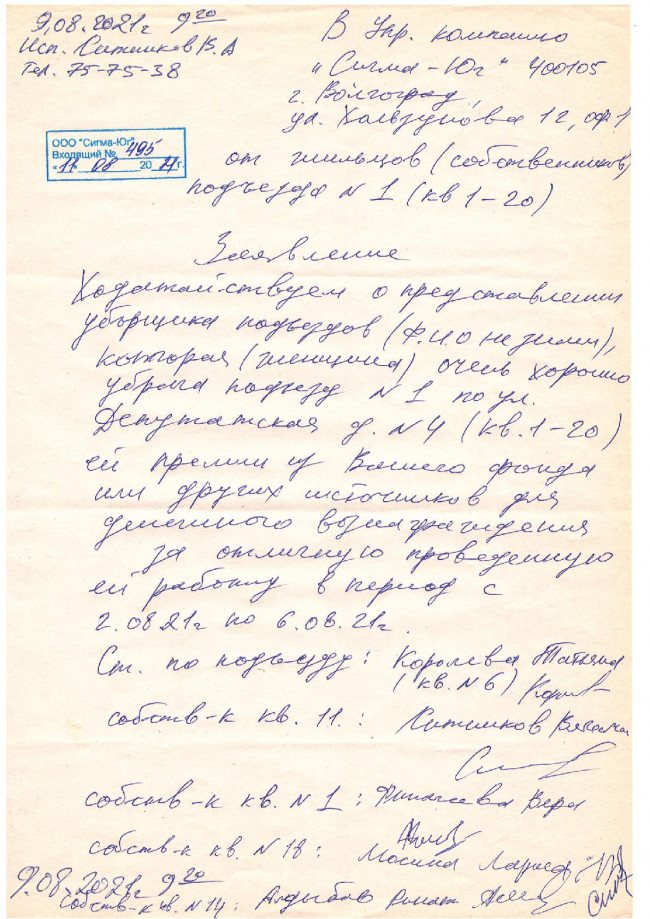 9.08.2021г 9²⁰
Исп. Ситников В.А
Тел. 75-75-38
В Упр. компанию
"Сигма-Юг" 400105
г. Волгоград,
ул. Хользунова 12, оф 1
ООО "Сигма-Юг"
Входящий № 495
"11" 08 2021г.
от жильцов (собственников)
подъезда N 1 (кв 1-20)
Заявление
Ходатайствуем о представлении
уборщика подъездов (Ф.И.О не знаем),
которая (женщина) очень хорошо
убрала подъезд N 1 по ул.
Депутатская д. N 4 (кв. 1-20)
ей премии из Вашего фонда
или других источников для
денежного вознаграждения
за отличную проведенную
ей работу в период с
2.08 21г по 6.08.21г.
Ст. по подъезду: Королева Татьяна
(кв. N 6)
собств-к кв. 11.: Ситников
собств-к кв. N 1: Вера
собств-к кв. N 18:
9.08.2021г 9²⁰
собств-к кв. N 14: Ринат